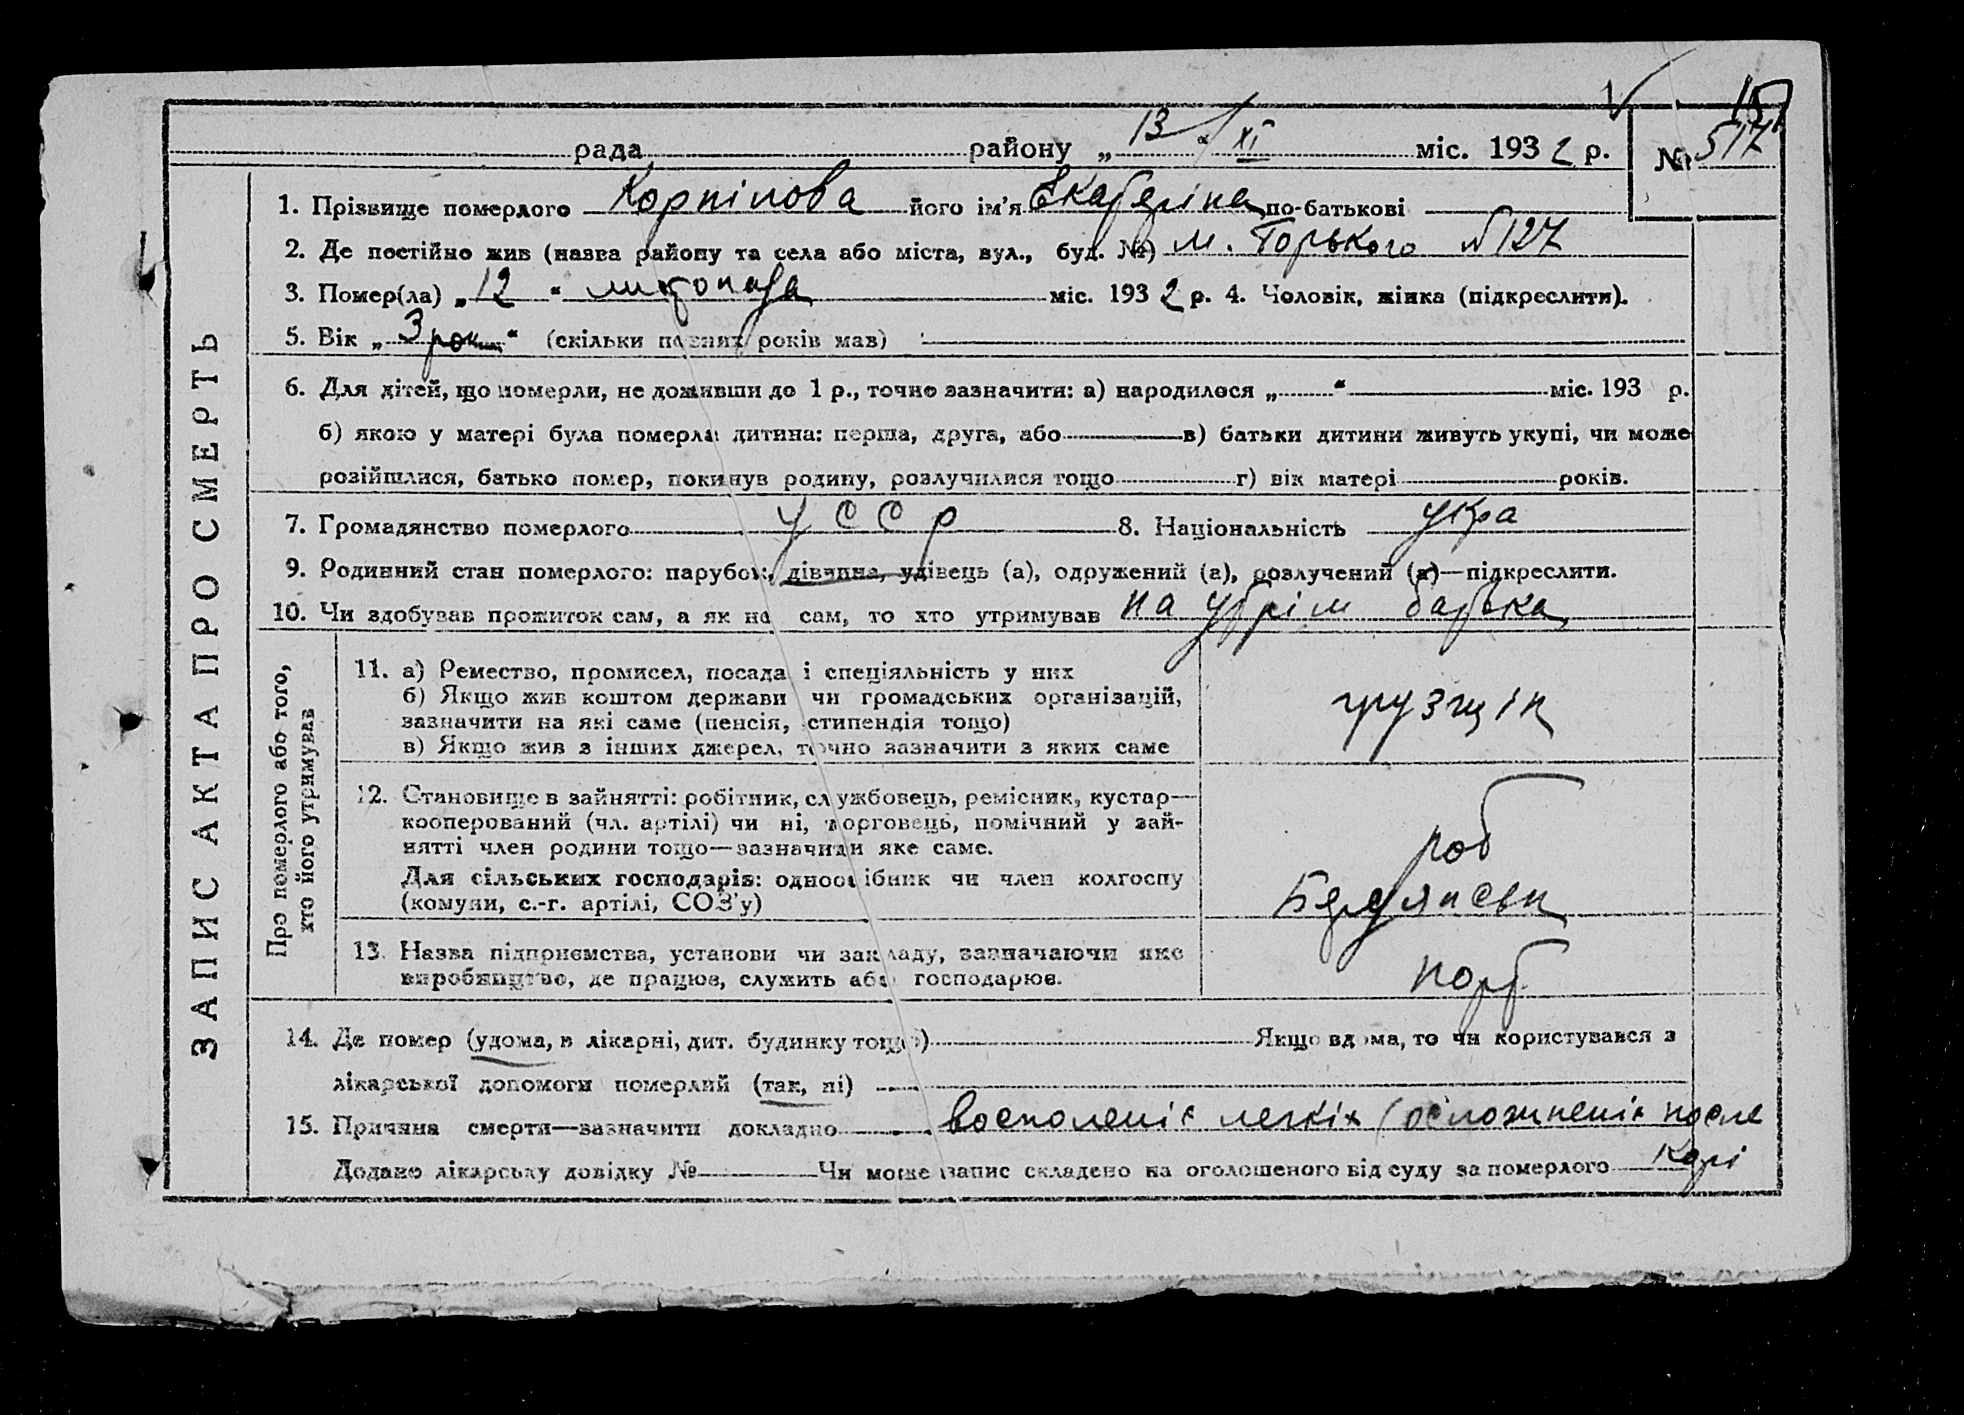 15
рада району „13“ XI міс. 1932 р. № 517
1. Прізвище померлого Корнілова його ім'я Екатеріна по-батькові
2. Де постійно жив (назва району та села або міста, вул., буд. №) М. Горького № 127
3. Помер(ла) „12“ листопада міс. 1932 р. 4. Чоловік, жінка (підкреслити).
5. Вік „3 роки“ (скільки повних років мав)
6. Для дітей, що померли, не доживши до 1 р., точно зазначити: а) народилося „ “ міс. 193 р.
б) якою у матері була померла дитина: перша, друга, або в) батьки дитини живуть укупі, чи може
розійшлися, батько помер, покинув родину, розлучилися тощо г) вік матері років.
7. Громадянство померлого УССР 8. Національність укра
9. Родинний стан померлого: парубок, дівчина, удівець (а), одружений (а), розлучений (а)—підкреслити.
10. Чи здобував прожиток сам, а як не сам, то хто утримував на утрім батька
ЗАПИС АКТА ПРО СМЕРТЬ
Про померлого або того,
хто його утримував
11. а) Ремество, промисел, посада і спеціяльність у них
б) Якщо жив коштом держави чи громадських організацій,
зазначити на які саме (пенсія, стипендія тощо)
в) Якщо жив з інших джерел, точно зазначити з яких саме
грузщік
12. Становище в зайнятті: робітник, службовець, ремісник, кустар—
кооперований (чл. артілі) чи ні, торговець, помічний у зай-
нятті член родини тощо—зазначити яке саме.
Для сільських господарів: одноосібник чи член колгоспу
(комуни, с.-г. артілі, СОЗ'у)
роб
Бердянськ
13. Назва підприємства, установи чи закладу, зазначаючи яке
виробництво, де працює, служить або господарює.
порт
14. Де помер (удома, в лікарні, дит. будинку тощо) Якщо вдома, то чи користувався з
лікарської допомоги померлий (так, ні)
15. Причина смерти—зазначити докладно восполеніє легкіх (осложненіє после
корі
Додано лікарську довідку № Чи може запис складено на оголошеного від суду за померлого